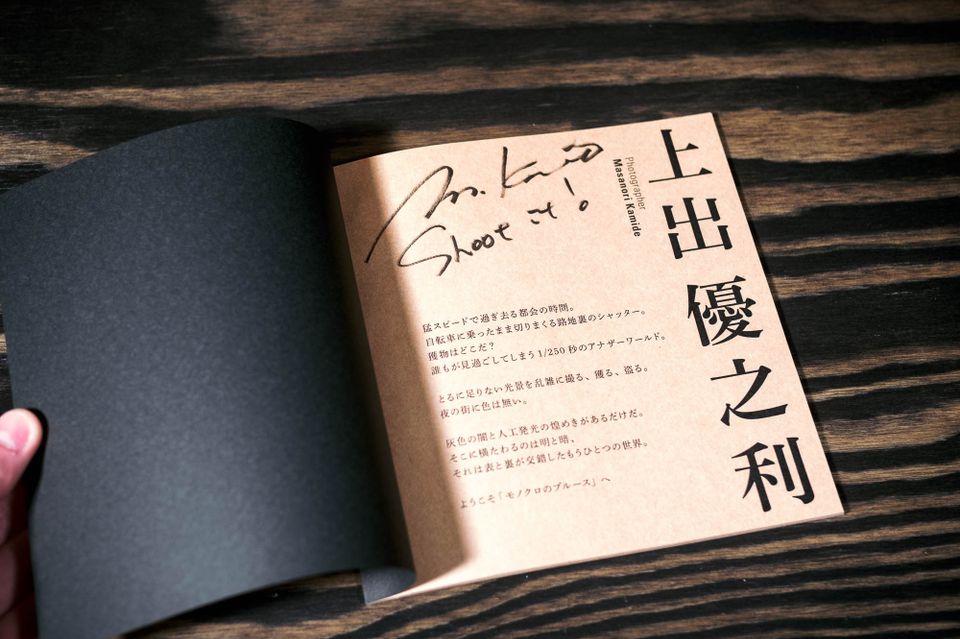 上出 優之利
Photographer
Masanori Kamide
M. Kamide
Shoot it!
猛スピードで過ぎ去る都会の時間。
自転車に乗ったまま切りまくる路地裏のシャッター。
獲物はどこだ？
誰もが見過ごしてしまう1/250 秒のアナザーワールド。
とるに足りない光景を乱雑に撮る、獲る、盗る。
夜の街に色は無い。
灰色の闇と人工発光の煌めきがあるだけだ。
そこに横たわるのは明と暗、
それは表と裏が交錯したもうひとつの世界。
ようこそ「モノクロのブルース」へ